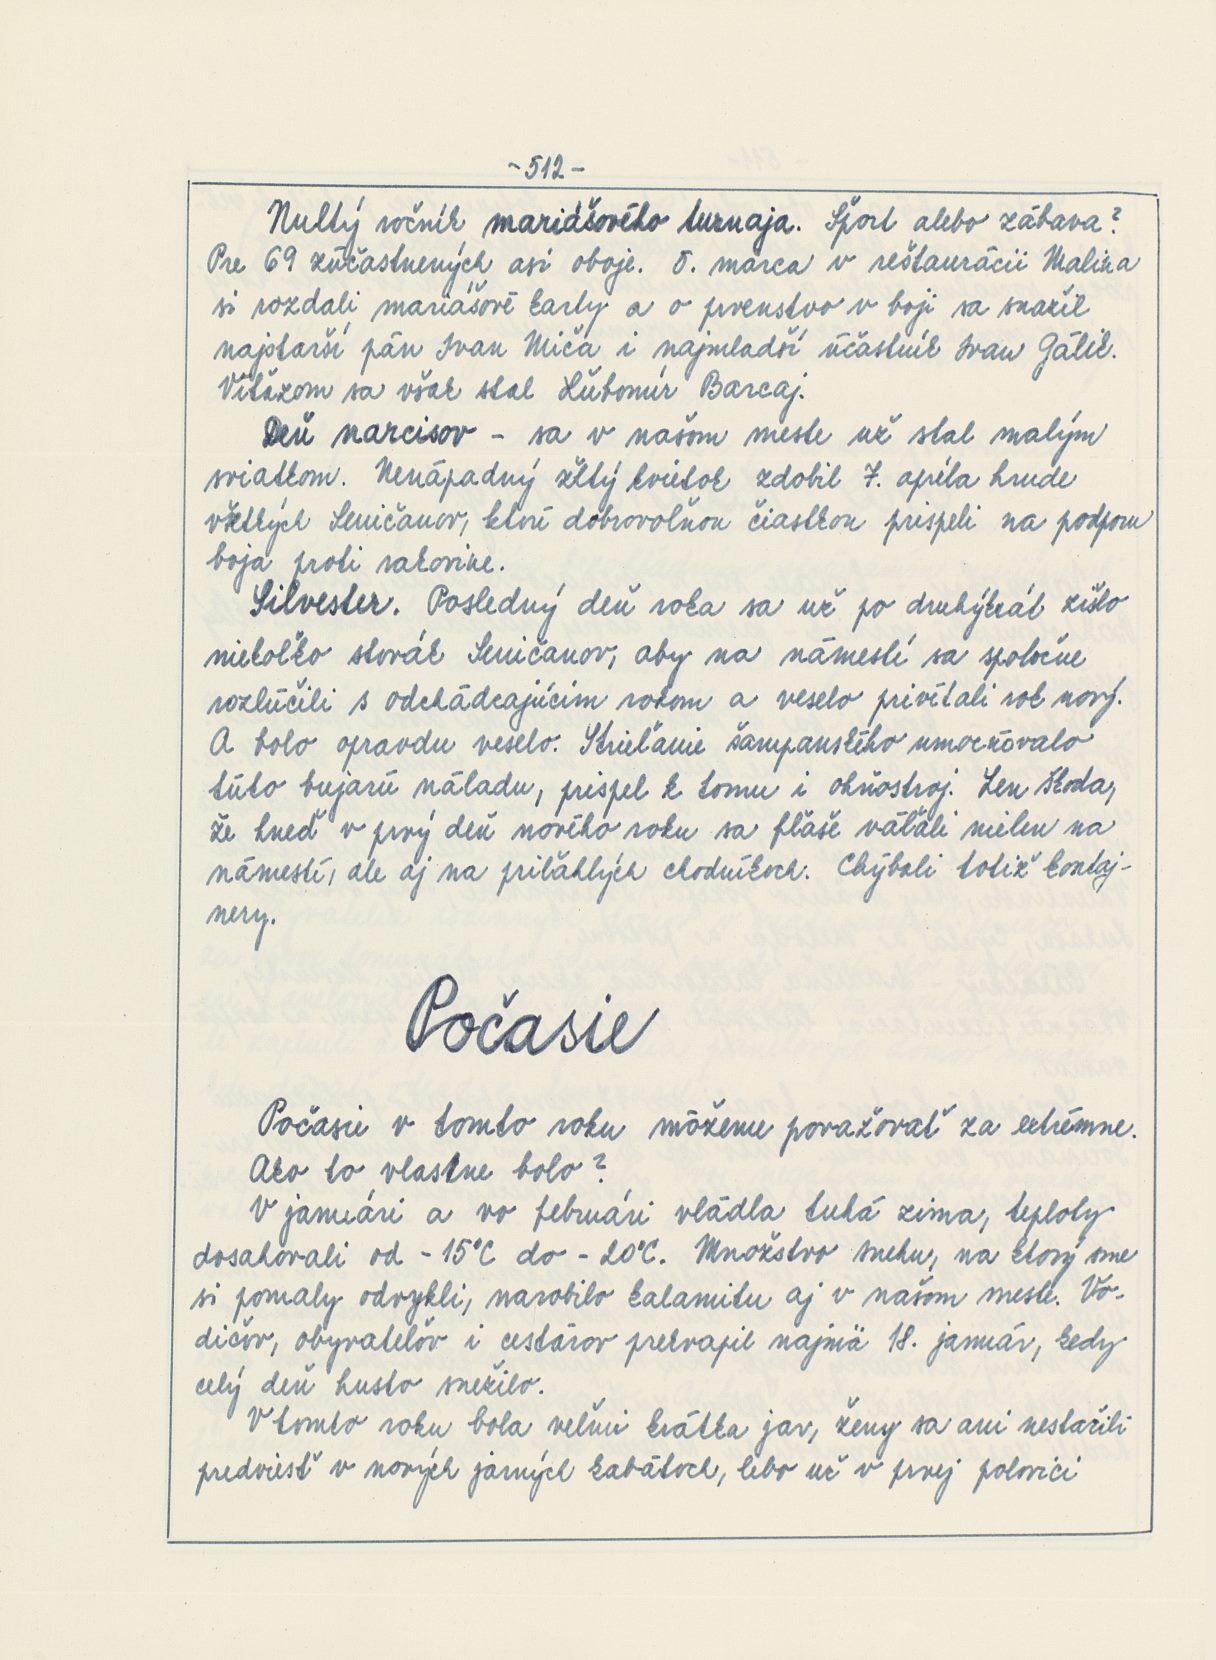 -512-
Nultý ročník mariášového turnaja. Šport alebo zábava?
Pre 69 zúčastnených asi oboje. 5. marca v reštaurácii Malina
si rozdali mariášové karty a o prvenstvo v boji sa snažil
najstarší pán Ivan Miča i najmladší účastník Ivan Gálik.
Víťazom sa však stal Ľubomír Barcaj.
Deň narcisov - sa v našom meste už stal malým
sviatkom. Nenápadný žltý kvietok zdobil 7. apríla hrude
všetkých Seničanov, ktorí dobrovoľnou čiastkou prispeli na podporu
boja proti rakovine.
Silvester. Posledný deň roka sa už po druhýkrát zišlo
niekoľko stovák Seničanov, aby na námestí sa spoločne
rozlúčili s odchádzajúcim rokom a veselo privítali rok nový.
A bolo opravdu veselo. Strieľanie šampanského umocňovalo
túto bujarú náladu, prispel k tomu i ohňostroj. Len škoda,
že hneď v prvý deň nového roku sa fľaše váľali nielen na
námestí, ale aj na priľahlých chodníkoch. Chýbali totiž kontaj-
nery.
Počasie
Počasie v tomto roku môžeme považovať za extrémne.
Ako to vlastne bolo?
V januári a vo februári vládla tuhá zima, teploty
dosahovali od -15°C do -20°C. Množstvo snehu, na ktorý sme
si pomaly odvykli, narobilo kalamitu aj v našom meste. Vo-
dičov, obyvateľov i cestárov prekvapil najmä 18. január, kedy
celý deň husto snežilo.
V tomto roku bola veľmi krátka jar, ženy sa ani nestačili
predviesť v nových jarných kabátoch, lebo už v prvej polovici